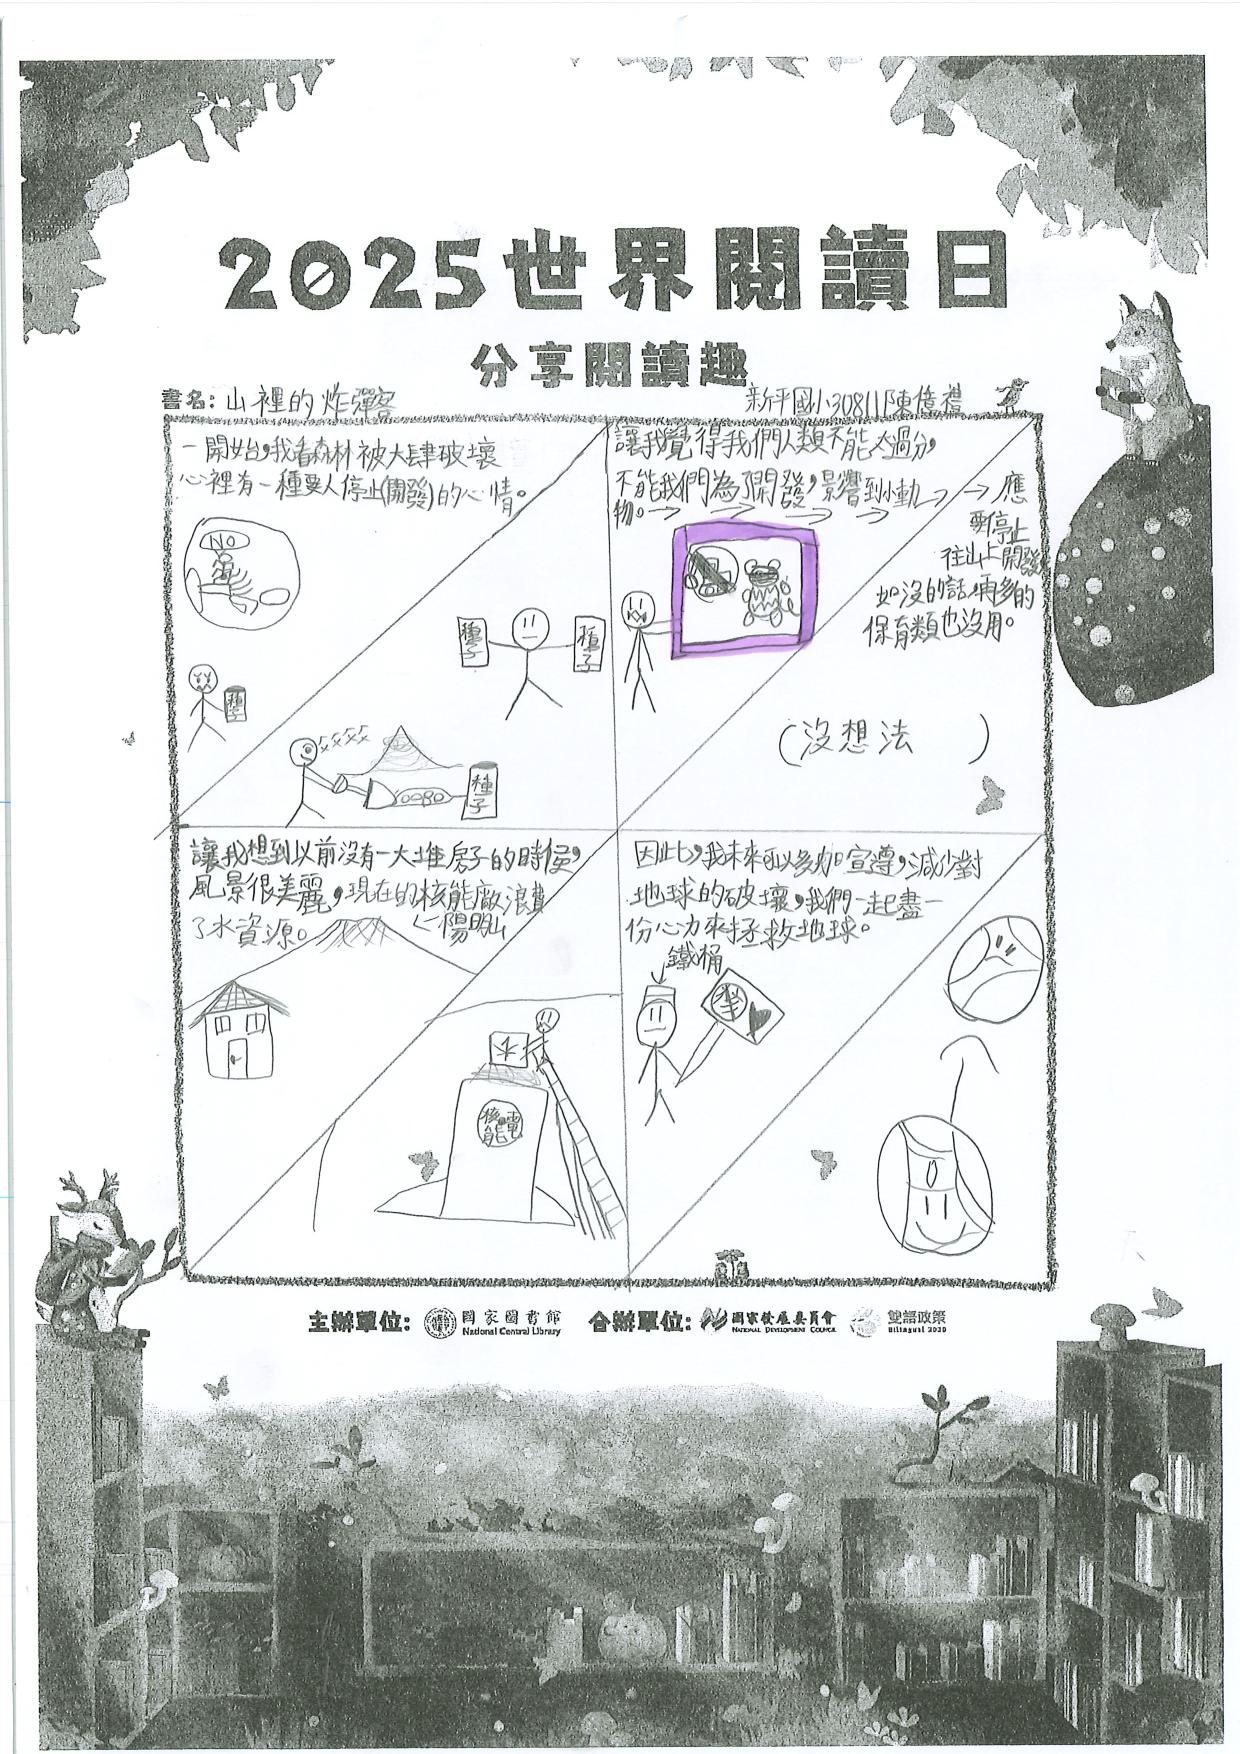 2025世界閱讀日
分享閱讀趣
書名：山裡的炸彈客
新平國小30811陳億禮
一開始，我看森林被大肆破壞
心裡有一種要人停止(開發)的心情。
NO
種子
種子
種子
種子
讓我覺得我們人類不能太過分，
不能我們為了開發，影響到小動→→應
物。→→→→
要停止
往山上開發
如沒的話，再多的
保育類也沒用。
(沒想法)
讓我想到以前沒有一大堆房子的時候，
風景很美麗，現在的核能廠浪費
了水資源。
←陽明山
水
核能電
因此，我未來可以多加宣導，減少對
地球的破壞，我們一起盡一
份心力來拯救地球。
鐵桶
主辦單位：國家圖書館
National Central Library
合辦單位：國家發展委員會
NATIONAL DEVELOPMENT COUNCIL
雙語政策
Bilingual 2030